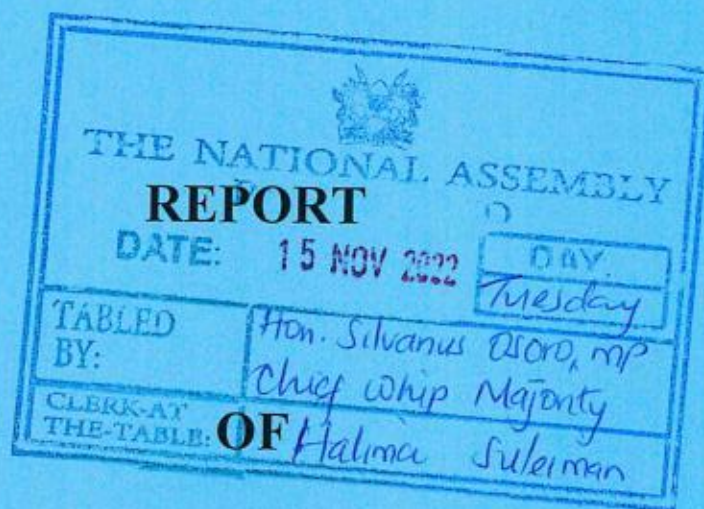 THE NATIONAL ASSEMBLY
REPORT
DATE: 15 NOV 2022 DAY.
Tuesday
TABLED BY: Hon. Silvanus Osoro, MP
Chief Whip Majority
CLERK-AT THE-TABLE: Halima Suleiman
OF